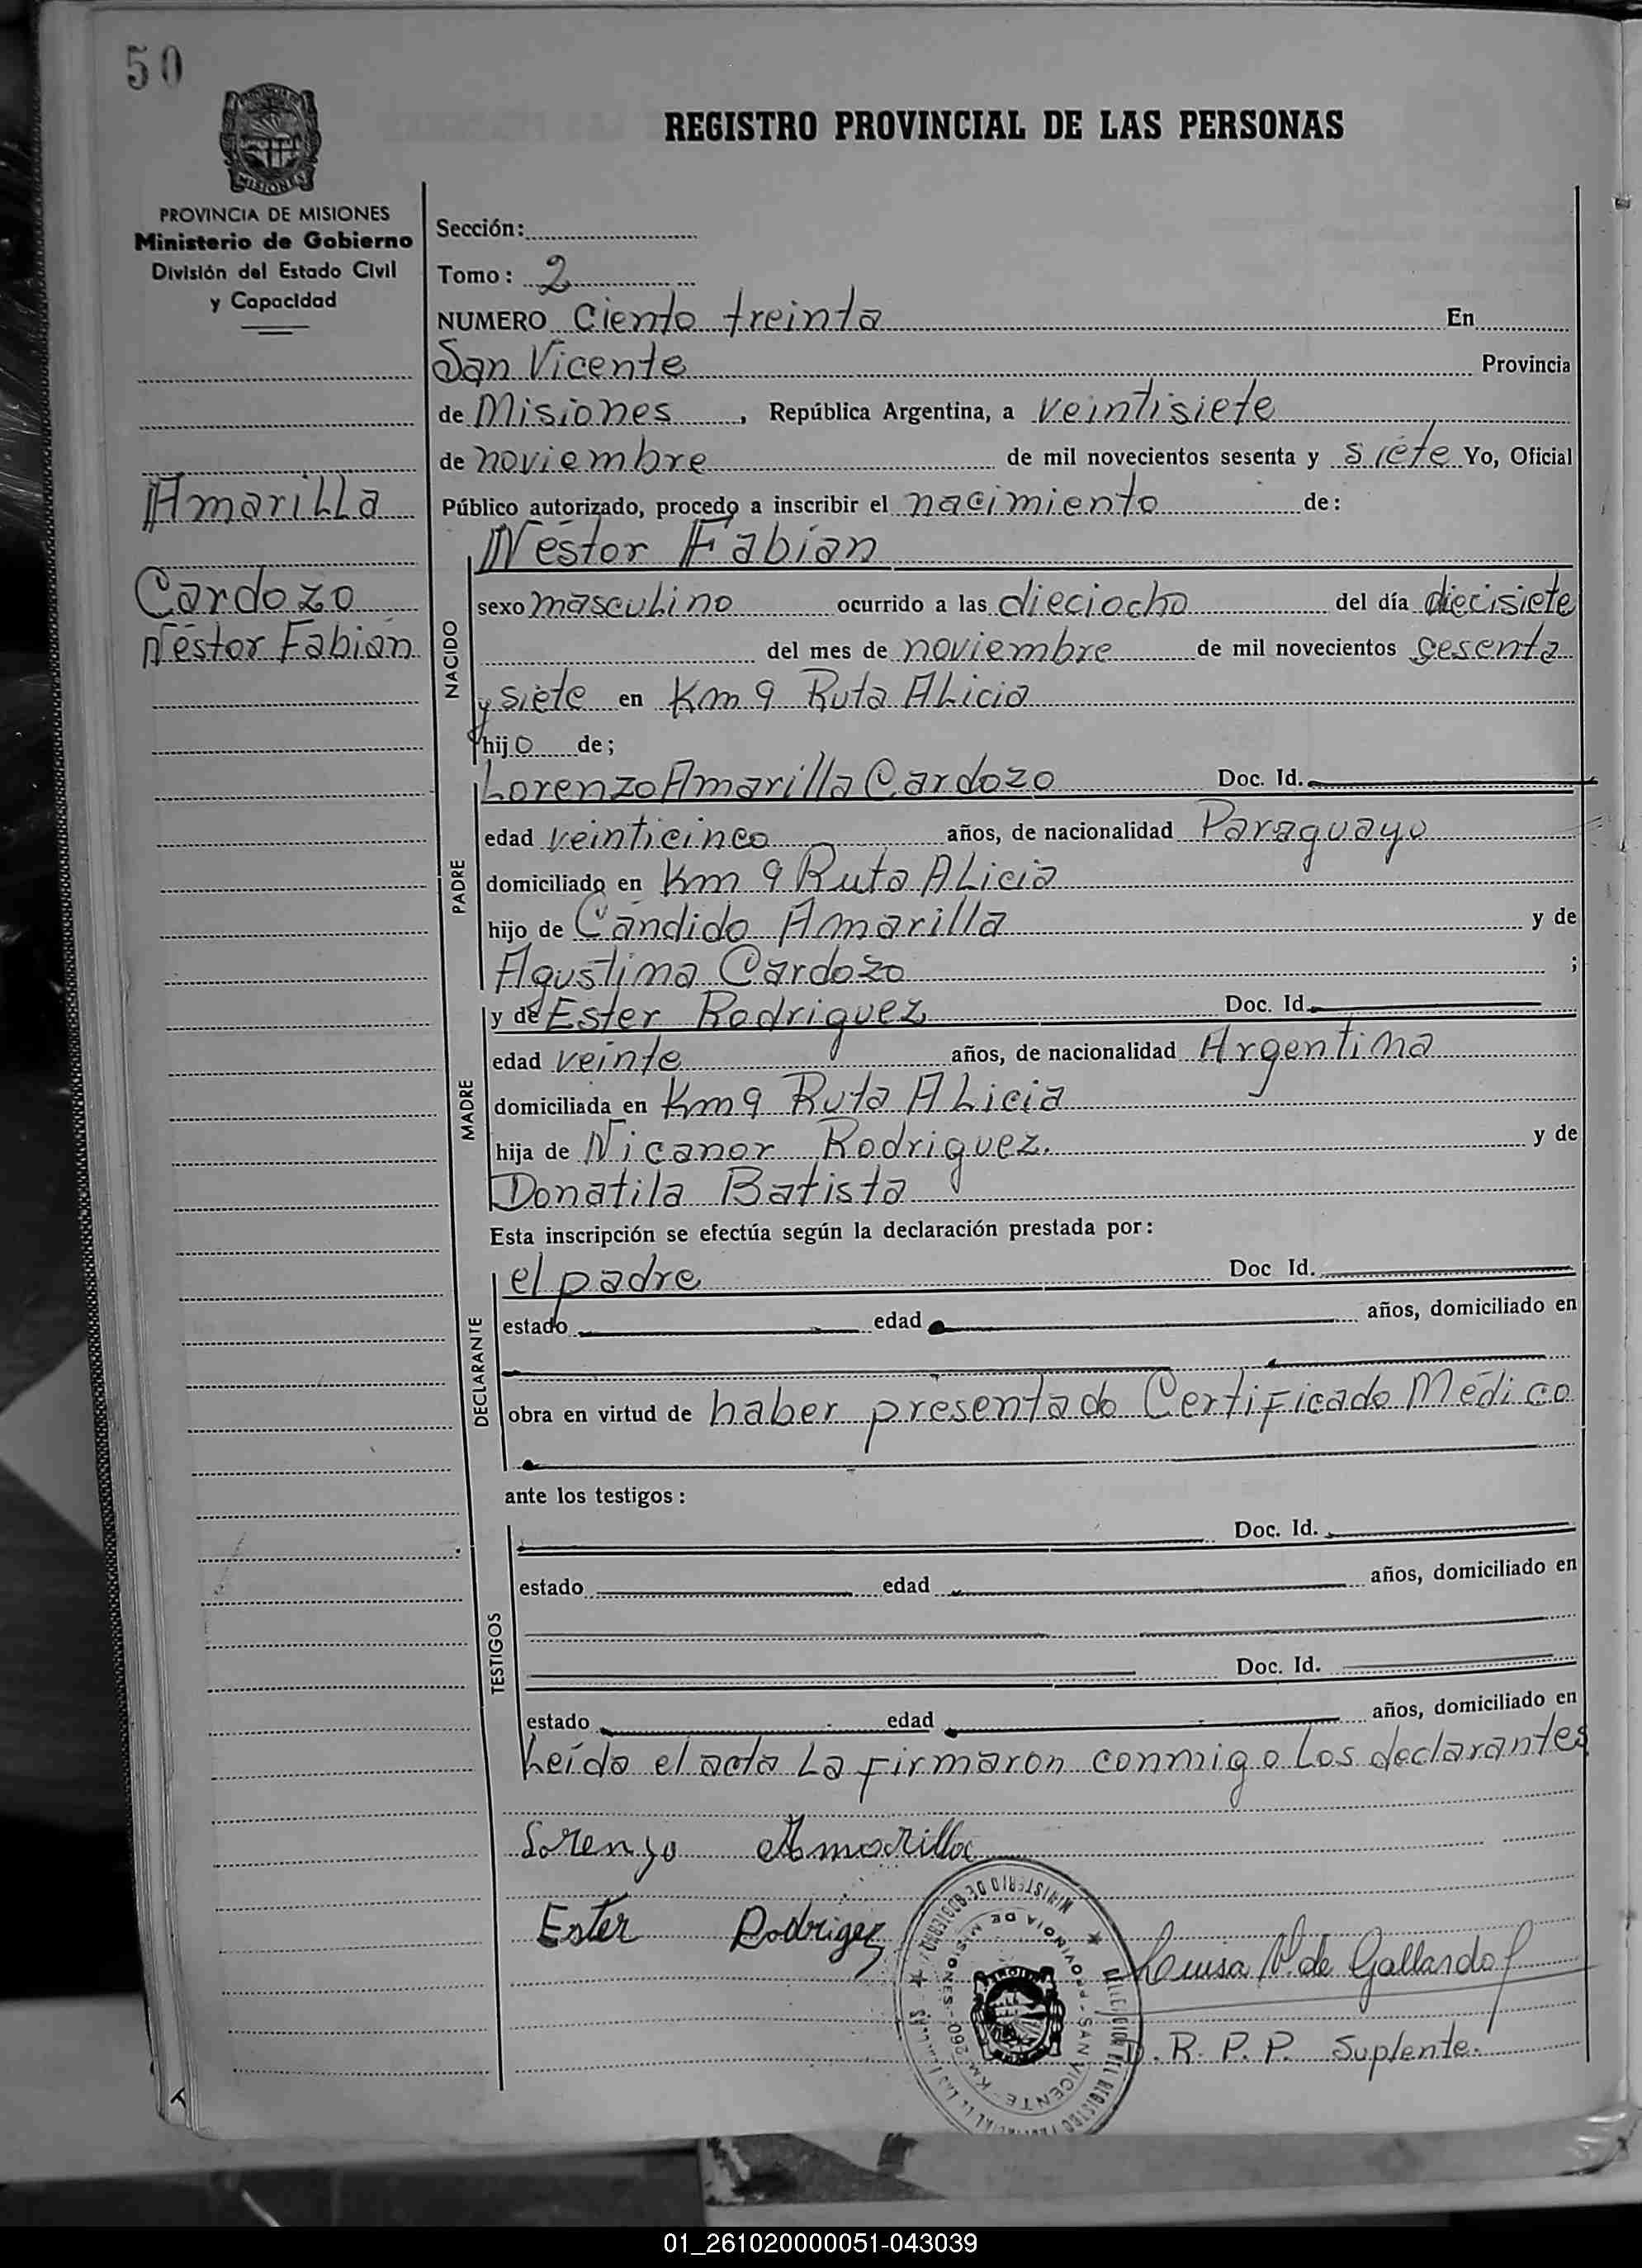 50
MISIONES
PROVINCIA DE MISIONES
Ministerio de Gobierno
División del Estado Civil
y Capacidad
REGISTRO PROVINCIAL DE LAS PERSONAS
Sección:
Tomo: 2
NUMERO Ciento treinta En
San Vicente Provincia
de Misiones, República Argentina, a veintisiete
de noviembre de mil novecientos sesenta y siete Yo, Oficial
Amarilla
Público autorizado, procedo a inscribir el nacimiento de:
Néstor Fabian
Cardozo
Néstor Fabian
NACIDO
sexo masculino ocurrido a las dieciocho del día diecisiete
del mes de noviembre de mil novecientos sesenta
y siete en Km 9 Ruta Alicia
hijo de;
PADRE
Lorenzo Amarilla Cardozo Doc. Id.
edad veinticinco años, de nacionalidad Paraguayo
domiciliado en Km 9 Ruta Alicia
hijo de Cándido Amarilla y de
Agustina Cardozo ;
MADRE
y de Ester Rodriguez Doc. Id.
edad veinte años, de nacionalidad Argentina
domiciliada en Km 9 Ruta Alicia
hija de Nicanor Rodriguez. y de
Donatila Batista
Esta inscripción se efectúa según la declaración prestada por:
DECLARANTE
el padre Doc Id.
estado edad años, domiciliado en
obra en virtud de haber presentado Certificado Médico
ante los testigos:
TESTIGOS
Doc. Id.
estado edad años, domiciliado en
Doc. Id.
estado edad años, domiciliado en
Leída el acta La firmaron conmigo Los declarantes
Lorenzo Amarilla
Ester Rodrigez
MINISTERIO DE GOBIERNO
PROVINCIA DE MISIONES - SAN VICENTE - KM 290
Luisa V. de Gallardo
D. R. P. P. Suplente.
01_261020000051-043039